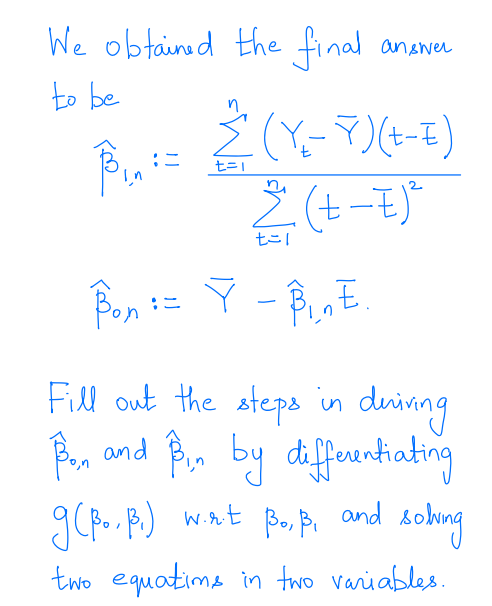 We obtained the final answer
to be
β̂₁,ₙ := Σₜ₌₁ⁿ (Yₜ − Ȳ)(t − t̄) / Σₜ₌₁ⁿ (t − t̄)²
β̂₀,ₙ := Ȳ − β̂₁,ₙ t̄.
Fill out the steps in deriving
β̂₀,ₙ and β̂₁,ₙ by differentiating
g(β₀, β₁) w.r.t β₀, β₁ and solving
two equations in two variables.